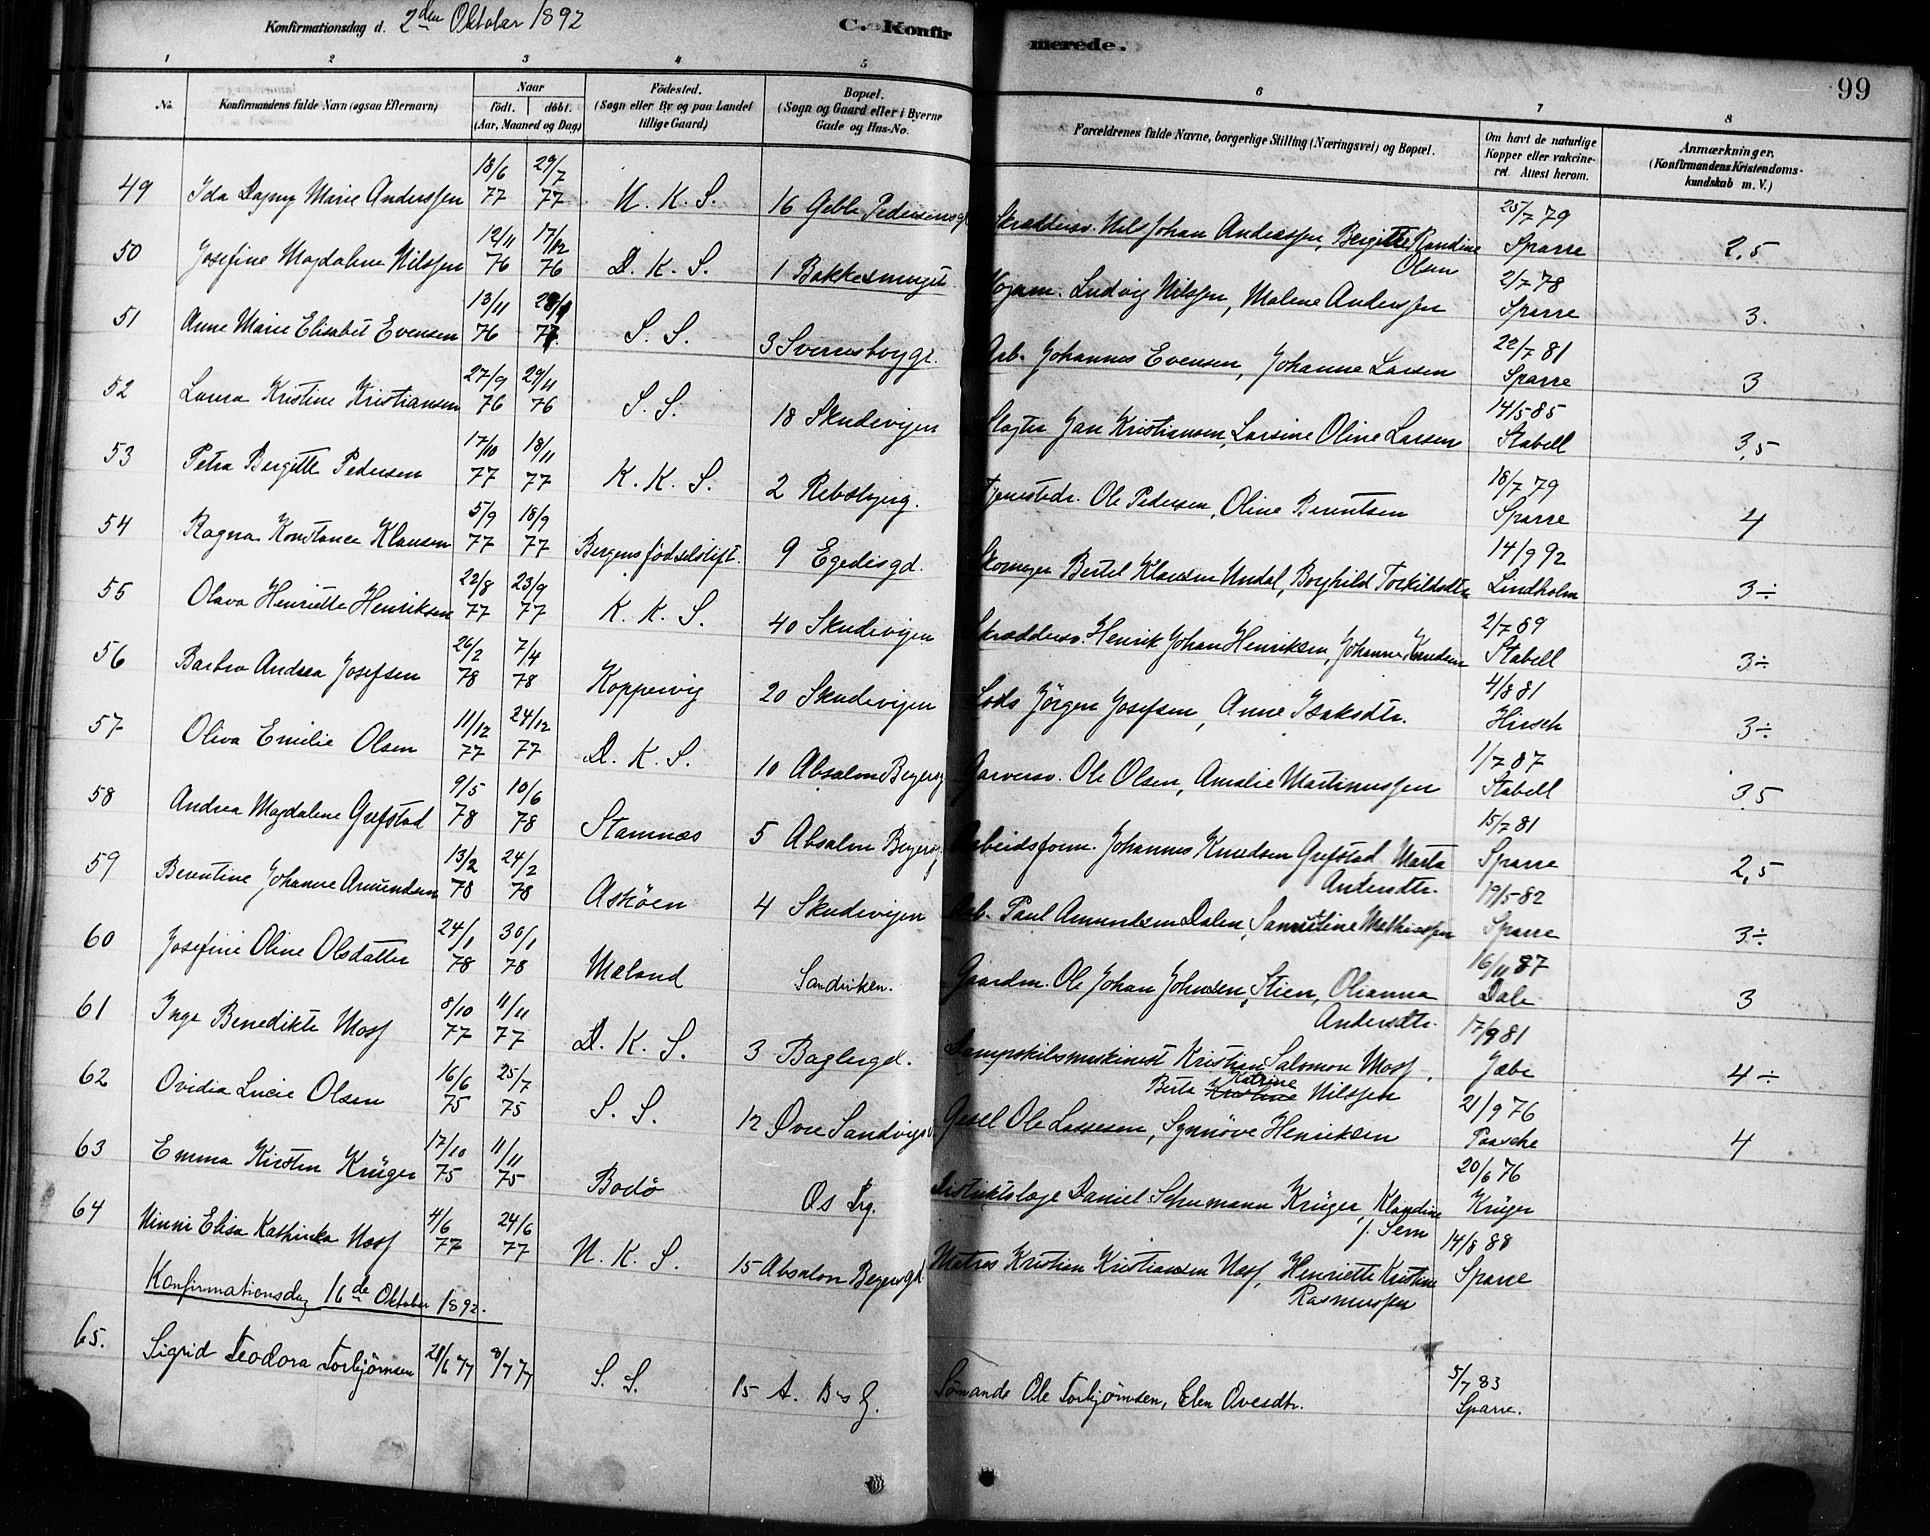 Konfirmationsdag d. 2den Oktober 1892 C. Konfirmerede. 99
1 2 3 4 5 6 7 8
No. Konfirmandens fulde Navn (ogsaa Efternavn) Naar født. døbt. (Aar, Maaned og Dag) Fødested. (Sogn eller By og paa Landet tillige Gaard) Bopæl. (Sogn og Gaard eller i Byerne Gade og Hus-No. Forældrenes fulde Navne, borgerlige Stilling (Næringsvei) og Bopæl. Om havt de naturlige Kopper eller vakcineret. Attest herom. Anmærkninger. (Konfirmandens Kristendomskundskab m. V.)
49 Ida Dagny Marie Anderssen 18/6 77 29/7 77 N. K. S. 16 Geble Pedersensg. Skræddersv. Nils Johan Anderssen, Bergitte Randine Olsen 25/7 79 Sparre 2,5
50 Josefine Magdalene Nilssen 12/11 76 17/12 76 D. K. S. 1 Bakkesmuget Ludvig Nilssen, Malene Anderssen 2/7 78 Sparre 3.
51 Anne Marie Elisabet Evensen 13/11 76 77 S. S. 3 Sverresborggt. Arb. Johannes Evensen, Johanne Larsen 22/7 81 Sparre 3
52 Laura Kristine Kristiansen 27/9 76 29/11 76 S. S. 18 Skudevigen Slagter Jan Kristiansen, Larsine Oline Larsen 14/5 85 Stabell 3,5
53 Petra Bergitte Pedersen 17/10 77 18/11 77 K. K. S. 2 Rebsbjerg. Tjenestedr. Ole Pedersen, Oline Berentsen 18/7 79 Sparre 4
54 Ragna Konstance Klausen 5/9 77 18/9 77 Bergens fødselsstift. 9 Egedisgd. Skomager Bertel Klausen Undal, Borghild Torkildsdtr 14/9 92 Lindholm 3÷
55 Olava Henriette Henriksen 22/8 77 23/9 77 K. K. S. 40 Skudevigen Skræddersv. Henrik Johan Henriksen, Johanne Knudsen 2/7 89 Stabell 3÷
56 Barbro Andrea Josefsen 26/2 78 7/4 78 Koppervig 20 Skudevigen Lods Jörgen Josefsen, Anne Isaksdtr. 4/8 81 Hirsch 3÷
57 Oliva Emilie Olsen 11/12 77 24/12 77 D. K. S. 10 Absalon Beyersg Garversv. Ole Olsen, Amalie Martinussen 1/7 87 Stabell 3,5
58 Andrea Magdalene Grefstad 9/5 78 10/6 78 Stamnæs 5 Absalon Beyersg Arbeidsform. Johannes Knudsen Grefstad, Marta Andersdtr. 15/7 81 Sparre 2,5
59 Berentine Johanne Amundsen 13/2 78 24/2 78 Askøen 4 Skudevigen Arb. Paul Amundsen Dalen, Mathiassen 19/5 82 Sparre 3÷
60 Josefine Oline Olsdatter 24/1 78 30/1 78 Mæland Sandviken. Gaardm. Ole Johan Johnsen, Stien, Olianna Andersdtr. 16/11 87 Dale 3
61 Inga Benedikte Moss 8/10 77 11/11 77 D. K. S. 3 Baglergd. Dampskibsmaskinist Kristian Salomon Moss, Berta Katrine Nilssen 17/9 81 Jæbe 4÷
62 Ovidia Lucie Olsen 16/6 75 25/7 75 S. S. 12 Øvre Sandvigsv. Gesel Ole Lassesen, Synnøve Henriksen 21/9 76 Paasche 4
63 Emma Kirsten Krüger 17/10 75 11/11 75 Bodö Os Prg. Distriktslæge Daniel Schumann Krüger, Klaudine f. Sem 20/6 76 Krüger
64 Ninni Elisa Kathinka Næss 4/6 77 24/6 77 N. K. S. 15 Absalon Beyersgd. Matros Kristian Kristiansen Næss, Henriette Kristine Rasmussen 14/8 88 Sparre
Konfirmationsdag 16de Oktober 1892.
65. Sigrid Teodora Torbjørnsen 28/6 77 8/7 77 S. S. 15 A. B's G. Sømand Ole Torbjørnsen, Elen Ovesdtr. 5/7 83 Sparre.